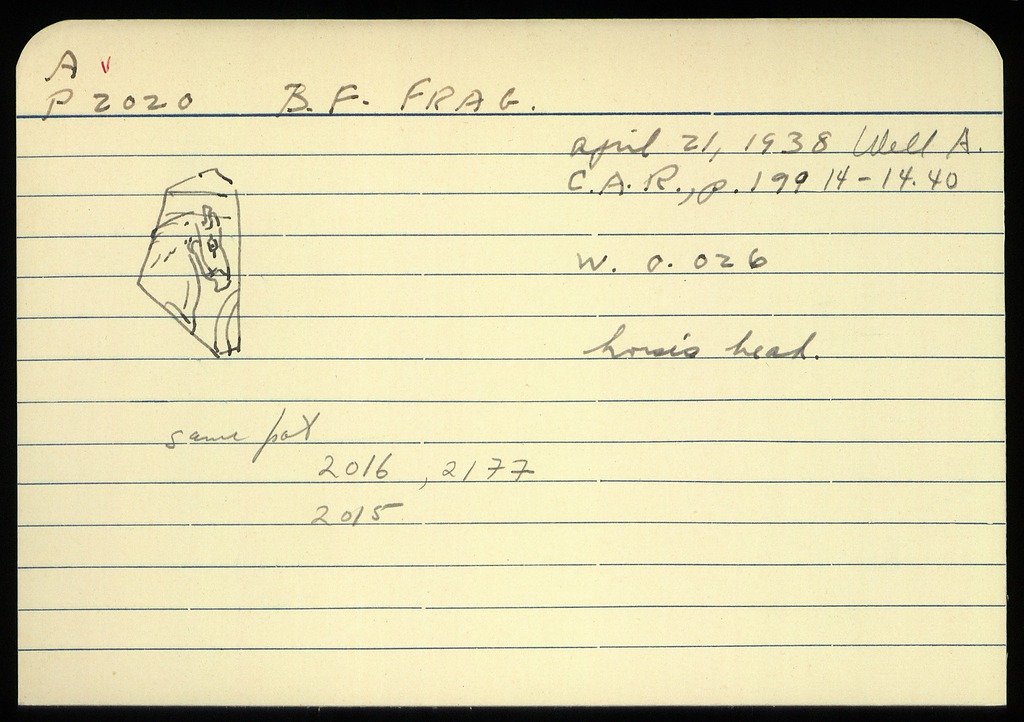 A v
P 2020 B.F. FRAG.
april 21, 1938 Well A.
C.A.R., p. 199 14-14.40
W. 0.026
horse's head.
same pot
2016, 2177
2015